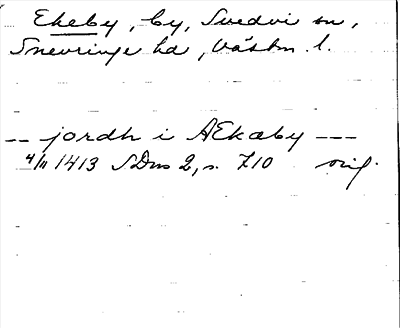 Ekeby, by, Svedvi sn,
Snevringe hd, Västm. l.
-- jordh i AEkaby ---
4/11 1413 SDns 2, s. 710 orig.